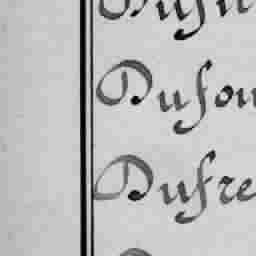 Dufou
Dufre